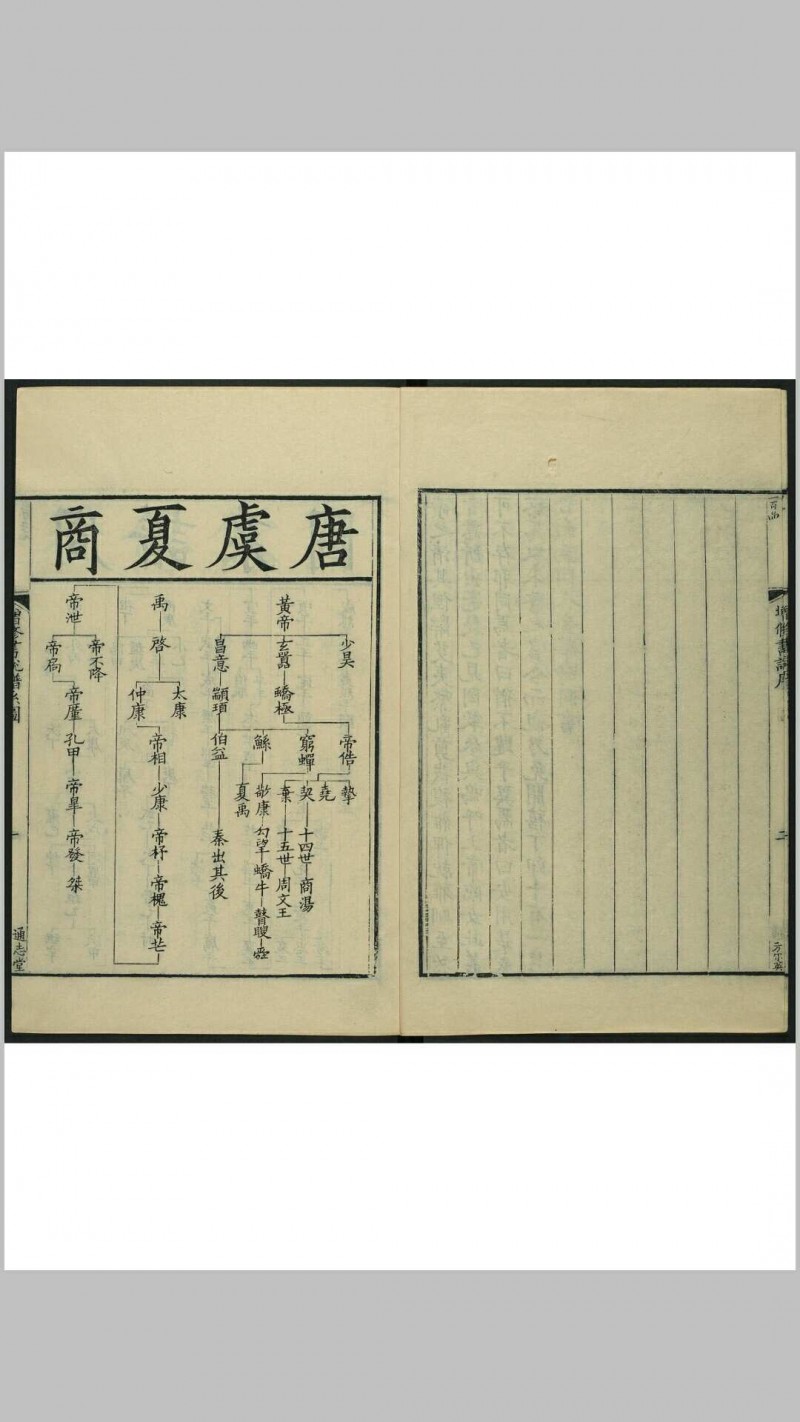 增修書說序
二
唐虞夏商
黃帝
少昊
玄囂
昌意
蟜極
顓頊
帝俈
窮蟬
鯀
伯益
摯
堯
契
棄
敬康
夏禹
十四世
商湯
十五世
周文王
勾望
蟜牛
瞽瞍
舜
秦出其後
禹
啓
太康
仲康
帝相
少康
帝杼
帝槐
帝芒
帝泄
帝不降
帝扃
帝廑
孔甲
帝皐
帝發
桀
增修書說譜系圖
一
通志堂